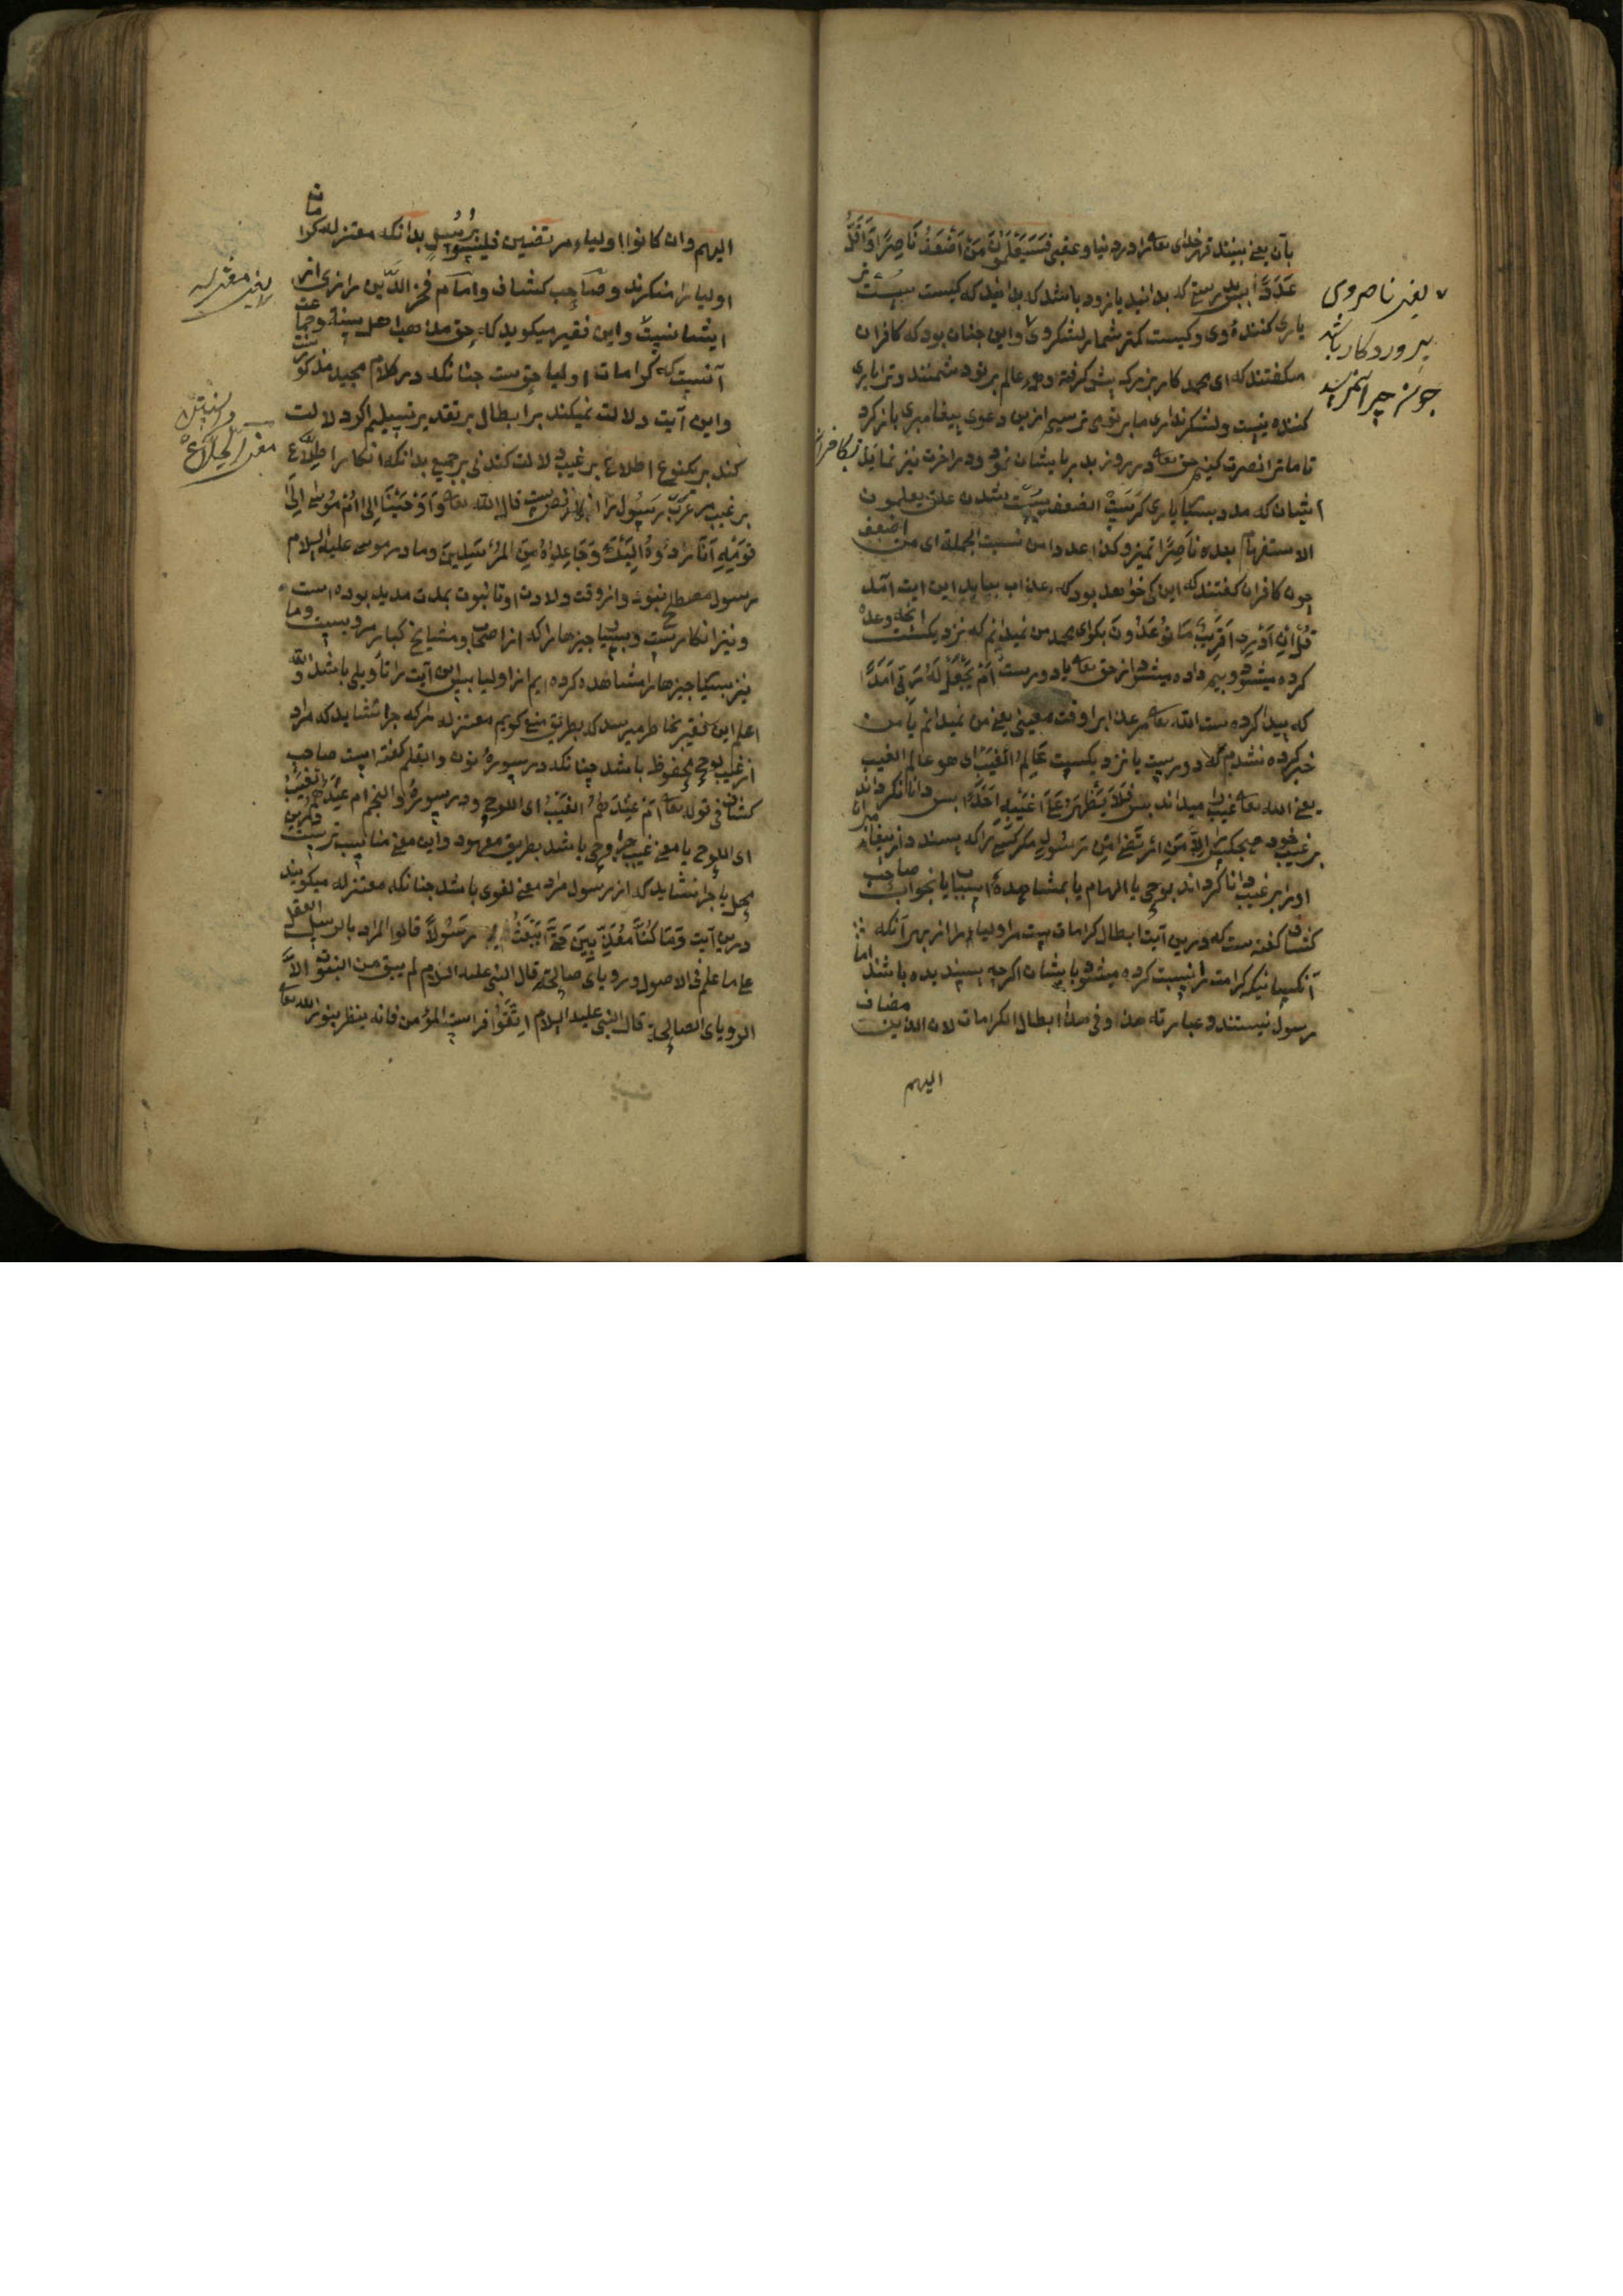 بآن یعنی ببینند قهر خدای تعالی را در دنیا و عقبی فَسَيَعْلَمُونَ مَنْ أَضْعَفُ نَاصِرًا وَأَقَلُّ
عَدَدًا که بدانید یا زود باشد که بدانید که کیست سست
یاری کننده وی و کیست کمتر شمار لشکر وی و این چنان بود که کافران
میگفتند که ای محمد کار بزرگ پیش گرفته و همه عالم بر تو دشمنند و ترا یاری
کننده نیست و لشکر نداری ما بر تو می ترسیم ازین دعوی پیغامبری باز کرد
تا ما ترا نصرت کنیم حق تعالی در روز بدر بایشان نمود و در آخرت نیز نماید
ایشان که مدد بسیار یاری که الضعف سست شدن علق یعلمون
الاستفهام بعده نَاصِرًا تمیز و کذا عددا من نسبت الجملة ای من اضعف
چون کافران گفتند که این کی خواهد بود که عذاب بیاید این آیت آمد
قُلْ إِنْ أَدْرِي أَقَرِيبٌ مَا تُوعَدُونَ بگو ای محمد من نمیدانم که نزدیکست آنچه وعده
کرده میشود و بیم داده میشود از حق تعالی یا دورست أَمْ يَجْعَلُ لَهُ رَبِّي أَمَدًا
که پیدا کرده ست الله تعالی مر عذاب را وقت معینی یعنی من نمیدانم یا من
خبر کرده نشدم که دورست یا نزدیکست عَالِمُ الْغَيْبِ ای هو عالم الغیب
یعنی الله تعالی غیب را میداند پس فَلَا يُظْهِرُ عَلَى غَيْبِهِ أَحَدًا پس دانا نکرداند
بر غیب خود هیچکس را إِلَّا مَنِ ارْتَضَى مِنْ رَسُولٍ مگر کسی را که پسندد از پیغامبران
او را بر غیب دانا کرداند بوحی یا الهام یا بمشاهده اسباب یا بخواب صاحب
کشاف گفته ست که درین آیت ابطال کرامات ست مر اولیاء را از بهر آنکه
آنکسانیکه کرامت را نسبت کرده میشود بایشان اگرچه پسندیده باشند اما
رسول نیستند و عبارته هذا و فی هذا ابطال الکرامات لان الذین مضاف
الیهم
یعنی ناصر وی
پروردکار باشد
چون چیز آنکس
الیهم وان کانوا اولیاء مرتضین فلیسوا برسل بدانکه معتزله کرامات
اولیا را منکرند و صاحب کشاف و امام فخر الدین رازی از
ایشانست و این فقیر میکوید که حق مذهب اهل سنة و جماعت
آنست که کرامات اولیا حق ست چنانکه در کلام مجید مذکورست
و این آیت دلالت نمیکند بر ابطال بر تقدیر تسلیم اکر دلالت
کند بر یکنوع اطلاع بر غیب دلالت کند نی بر جمیع بدانکه انکار اطلاع
بر غیب مر غیر رسول را انکار نص ست قال الله تعالی وَأَوْحَيْنَا إِلَى أُمِّ مُوسَى إلی
قوله إِنَّا رَادُّوهُ إِلَيْكِ وَجَاعِلُوهُ مِنَ الْمُرْسَلِينَ و مادر موسی علیه السلام
رسول مصطلح نبود و از وقت ولادت او تا نبوت بمدت مدید بوده است
و نیز انکارست و بسی چیزها را که از اصحاب و مشایخ کبار مرویست و ما
نیز بسیار چیزها را مشاهده کرده ایم از اولیا پس این آیت را تأویلی باشد والله
اعلم این فقیر بخاطر میرسد که بطریق منع کویم معتزله را که چرا نشاید که مراد
از غیب لوح محفوظ باشد چنانکه در سوره نون والقلم گفته است صاحب
کشاف فی قوله تعالی أَمْ عِنْدَهُمُ الْغَيْبُ ای اللوح و در سوره والنجم ام عنده الغیب
ای اللوح یا معنی غیب وحی باشد بطریق معهود و این معنی مناسب ترست
یا چرا نشاید که از رسول مراد معنی لغوی باشد چنانکه معتزله میکویند
درین آیت وَمَا كُنَّا مُعَذِّبِينَ حَتَّى نَبْعَثَ رَسُولًا قالوا المراد بالرسل العقل
علی ما علم فی الاصول و رویای صالحه قال النبی علیه السلام لم یبق من النبوة الا
الرویای الصالحة قال النبی علیه السلام اتقوا فراست المؤمن فانه ینظر بنور الله تعالی
یعنی معتزله